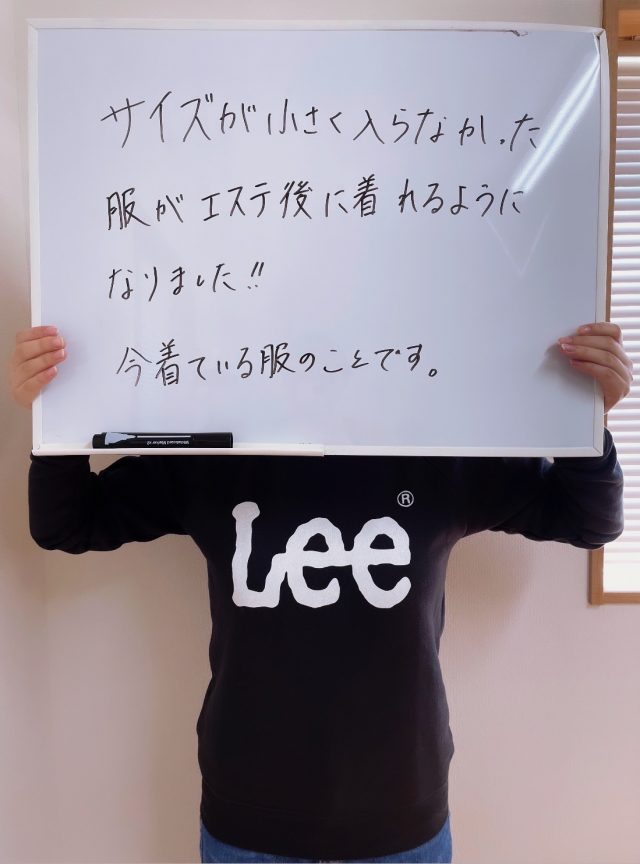 サイズが小さく入らなかった
服がエステ後に着れるように
なりました!!
今着ている服のことです。
Whiteboard Marker
Lee®